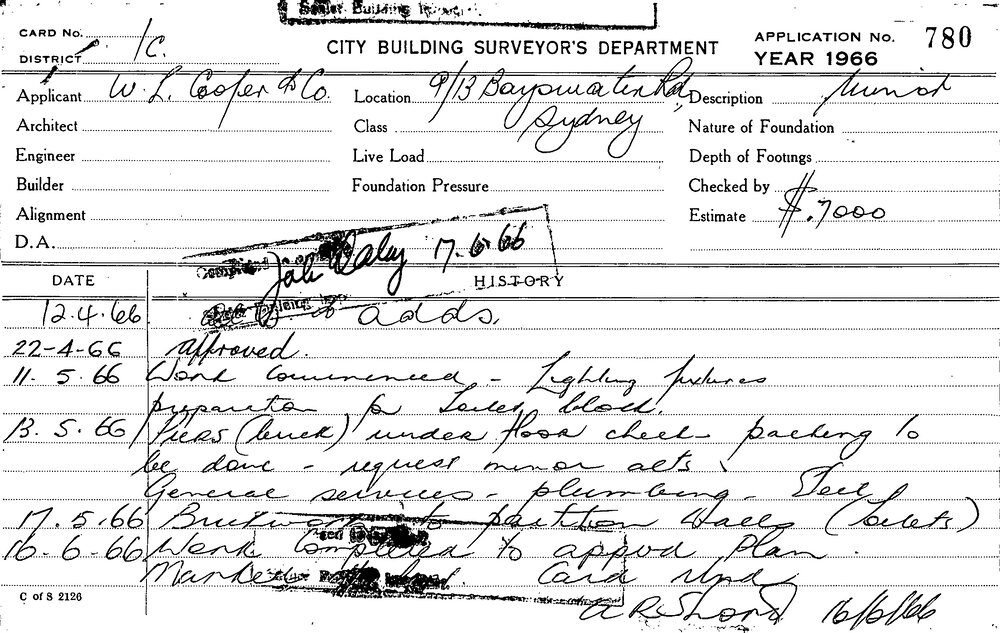 Senior Building
CARD No.
DISTRICT 1C.
CITY BUILDING SURVEYOR'S DEPARTMENT
APPLICATION No. 780
YEAR 1966
Applicant W. L. Cooper & Co. Location 9/13 Bayswater Rd, Description Minor
Sydney
Architect Class Nature of Foundation
Engineer Live Load Depth of Footings
Builder Foundation Pressure Checked by
Alignment Estimate $.7000
D.A.
Completed 17.6.66
DATE HISTORY
12.4.66 adds.
22-4-66 approved.
11.5.66 Work Commenced - Lighting fixtures
preparation for toilet block.
13.5.66 Piers (brick) under floor check - packing to
be done - request minor alts.
General services - plumbing - Steel
17.5.66 Brickwork to partition Walls (toilets)
16-6-66 Work Completed to appvd Plan.
Card
16/6/66
C of S 2126